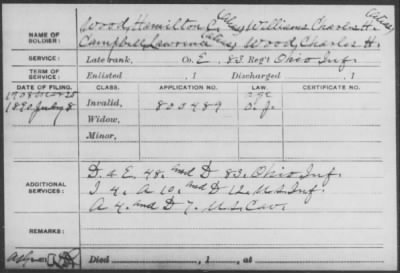 NAME OF SOLDIER: Wood, Hamilton C. (alias) Williams Charles H. (alias)
Campbell, Lawrence (alias) Wood, Charles H.
SERVICE: Late rank, Co. E. 83 Reg't Ohio Inf.
TERM OF SERVICE: Enlisted , 1 Discharged , 1
DATE OF FILING. CLASS. APPLICATION NO. LAW. CERTIFICATE NO.
1908 Mar 25 age
1890 July 8 Invalid, 800489 O. J.
Widow,
Minor,
ADDITIONAL SERVICES: D & E. 48. and D 83. Ohio Inf.
I 4. A 10. and D 12. U.S. Inf.
A 4. and D 7. U.S. Cav.
REMARKS:
Died , 1 , at